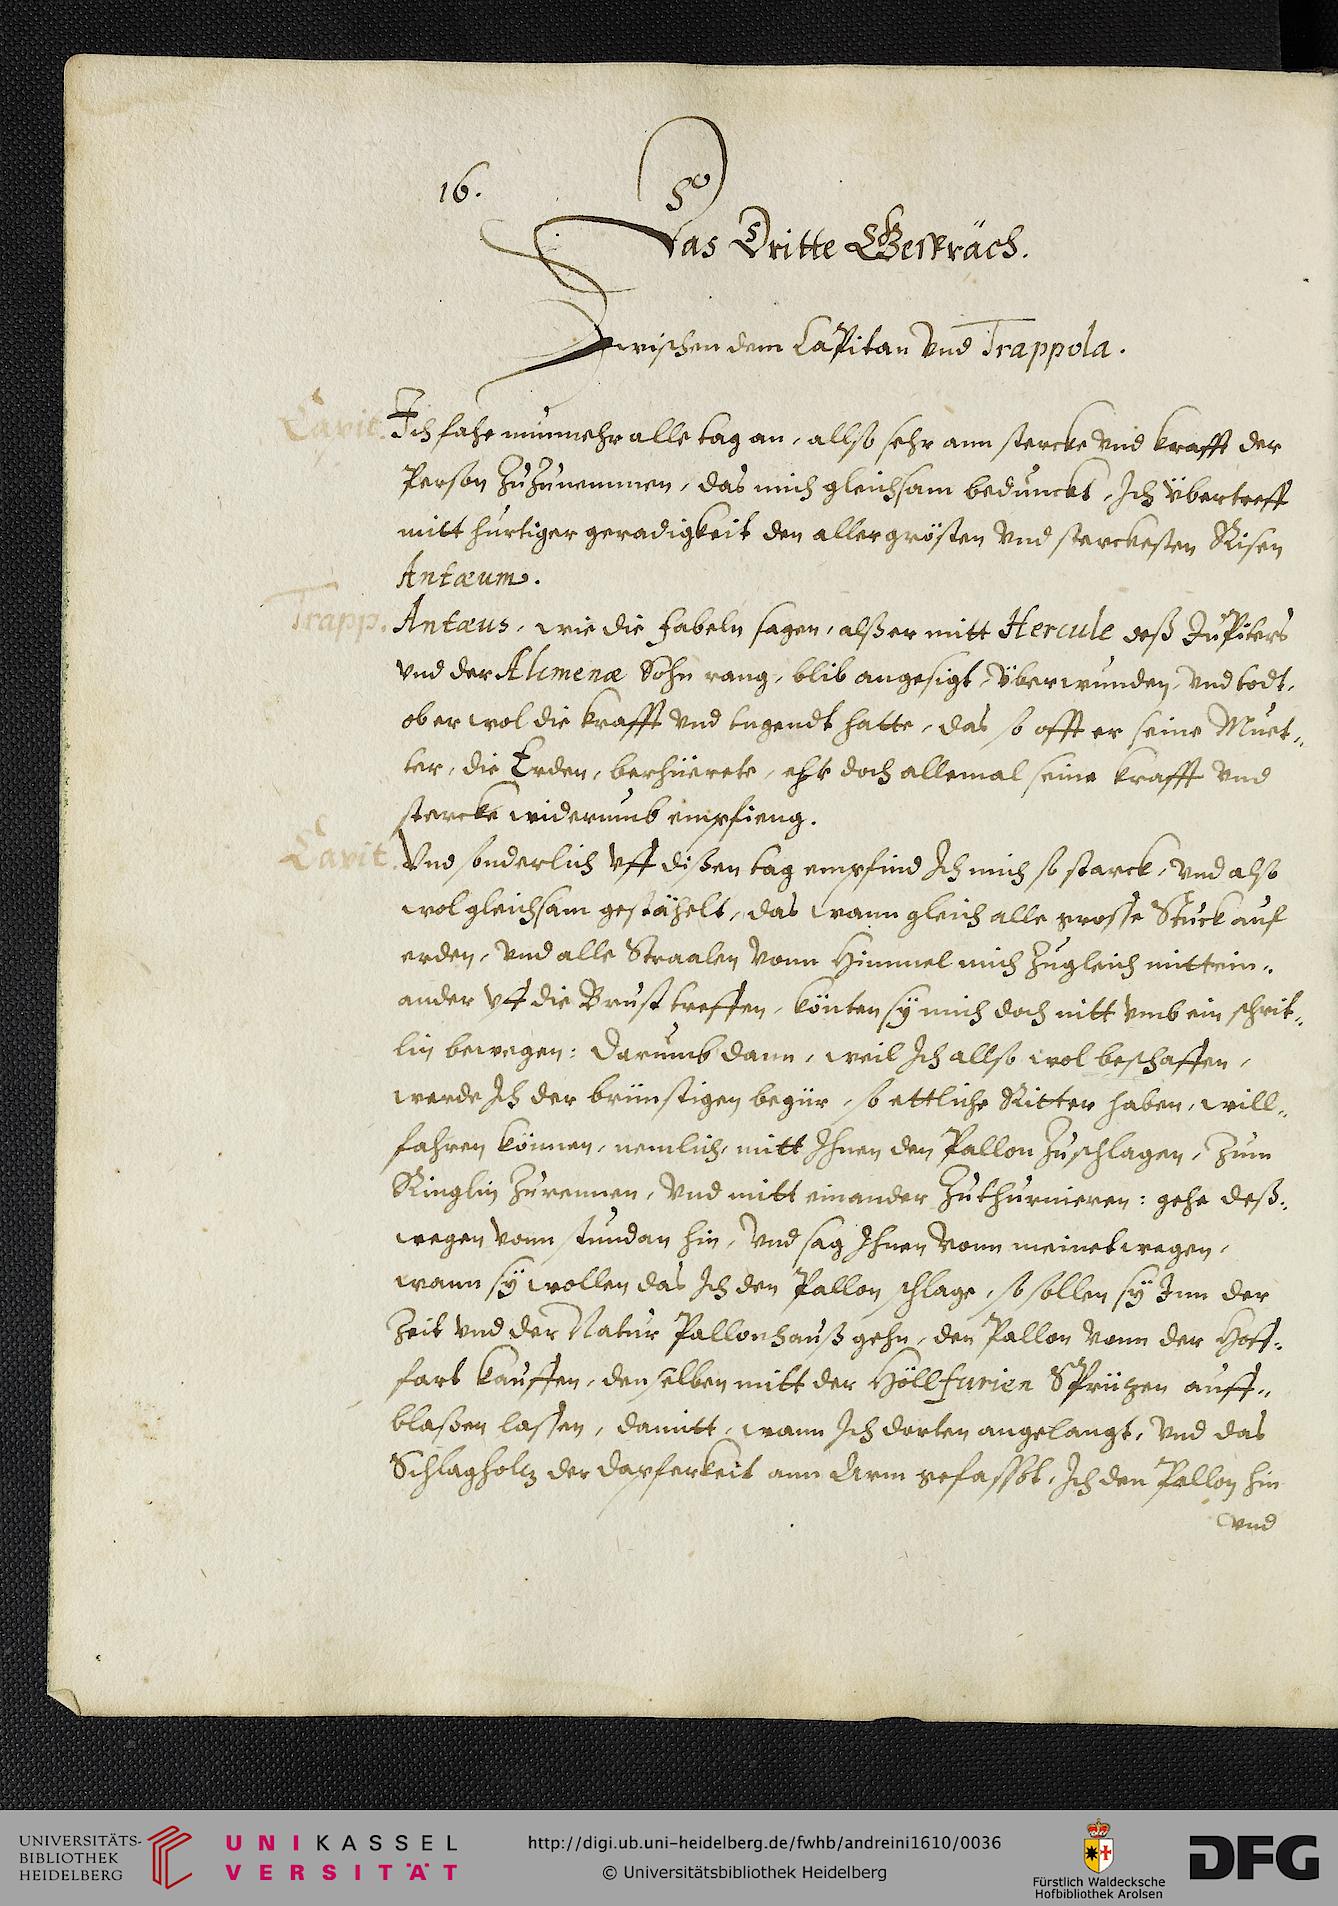 16.
Das Dritte Gespräch.
Zwischen dem Capitan Vnd Trappola.
Capit. Ich fahe nunmehr alle tag an, allso sehr ann stercke vnd krafft der
Person Zu Zunemmen, das mich gleichsam beduncket, Ich übertreff
mitt hurtiger geradigkeit den allergrösten vnd sterckesten Risen
Antæum.
Trapp. Antæus, wie die fabeln sagen, alß er mitt Hercule deß Jupiters
vnd der Alcmenæ Sohn rang, blib angesigt, überwunden, vnd todt,
ob er wol die krafft vnd tugendt hatte, das so offt er seine Muet„
ter, die Erden, berhüerete, doch allemal seine krafft vnd
stercke widerumb empfieng.
Capit. Vnd sonderlich vff dißen tag empfind Ich mich so starck, vnd also
wol gleichsam gestähelt, das wann gleich alle grosse Stuck auf
erden, vnd alle Straalen vonn Himmel mich Zugleich mittein„
ander vff die Brust treffen, könten sÿ mich doch nitt vmb ein schrit„
lin bewegen: darumb dann, weil Ich allso wol beschaffen,
werde Ich der brünstigen begür, so ettliche Ritter haben, will„
fahren können, nemlich, mitt Ihnen den Pallon Zuschlagen, Zum
Ringlin Zurennen, vnd mitt einander Zuthurnieren: gehe deß„
wegen vonn stundan hin, vnd sag Ihnen vonn meinetwegen,
wann sÿ wollen das Ich den Pallon schlage, so sollen sÿ Inn der
Zeit vnd der Natur Pallonhauß gehn, den Pallon vonn der Hoff„
fart kauffen, denselben mitt der Höllfurien Sprützen auff„
blaßen lassen, damitt, wann Ich dorten angelangt, vnd das
Schlagholtz der dapferkeit ann Arm gefasst, Ich den Pallon hin
vnd
UNIVERSITÄTS-
BIBLIOTHEK
HEIDELBERG
UNIKASSEL
VERSITÄT
http://digi.ub.uni-heidelberg.de/fwhb/andreini1610/0036
© Universitätsbibliothek Heidelberg
Fürstlich Waldecksche
Hofbibliothek Arolsen
DFG